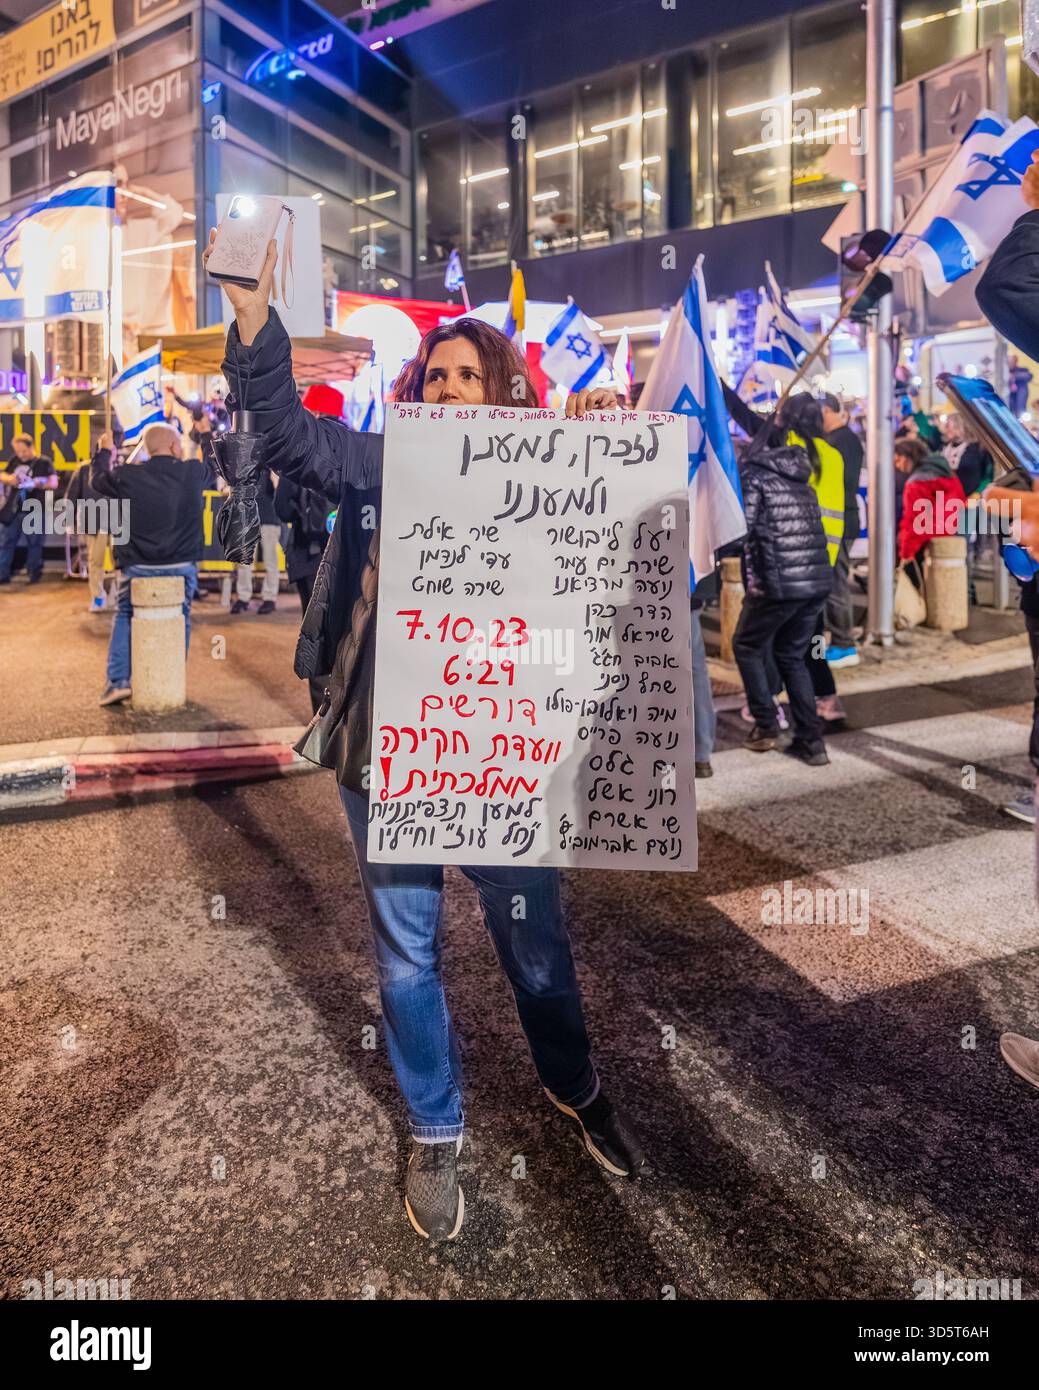 באנו
להרים!
MayaNegri
"תראו איך היא הולכת בשלווה, כאילו עכה לא לידה"
לזכרן, למענן
ולמעננו
יעל לייבושור
שירת ים עמר
נועה מרציאנו
הדר כהן
שיראל מור
אביב חג'ג'
שחף ניסני
מיה ויאלובו-פולו
נועה פרייס
ים גלס
רוני אשל
שי אשרם
נועם אברמוביץ'
שיר אילת
עדי לנדמן
שירה שוחט
7.10.23
6:29
דורשים
וועדת חקירה
ממלכתית!
למען תצפיתניות
"נחל עוז" וחיילין
alamy
Image ID: 3D5T6AH
www.alamy.com